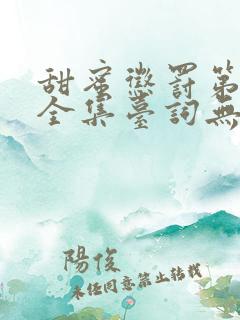 甜蜜懲罰第
全集臺詞無
陽俊
未经同意禁止转载